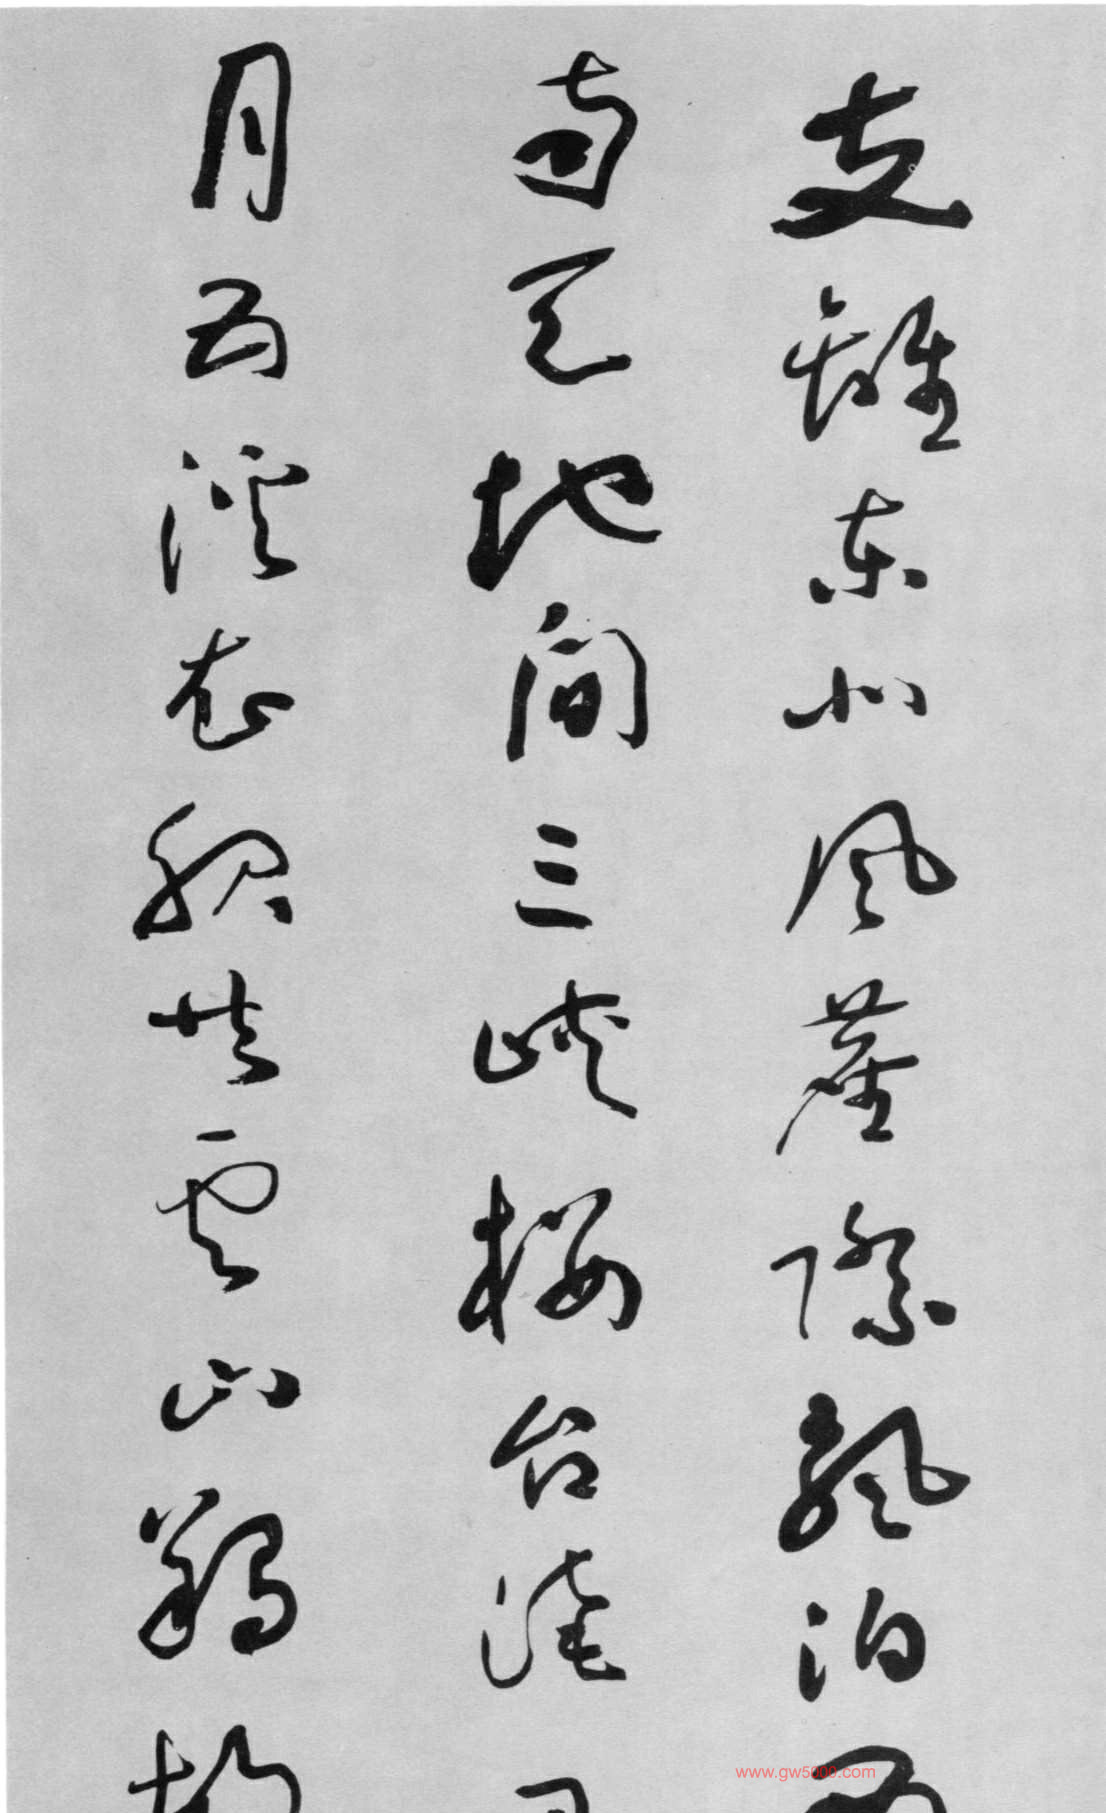 支離東北風塵際飄泊西
南天地間三峽樓臺淹日
月五溪衣服共雲山羯胡
www.gw5000.com